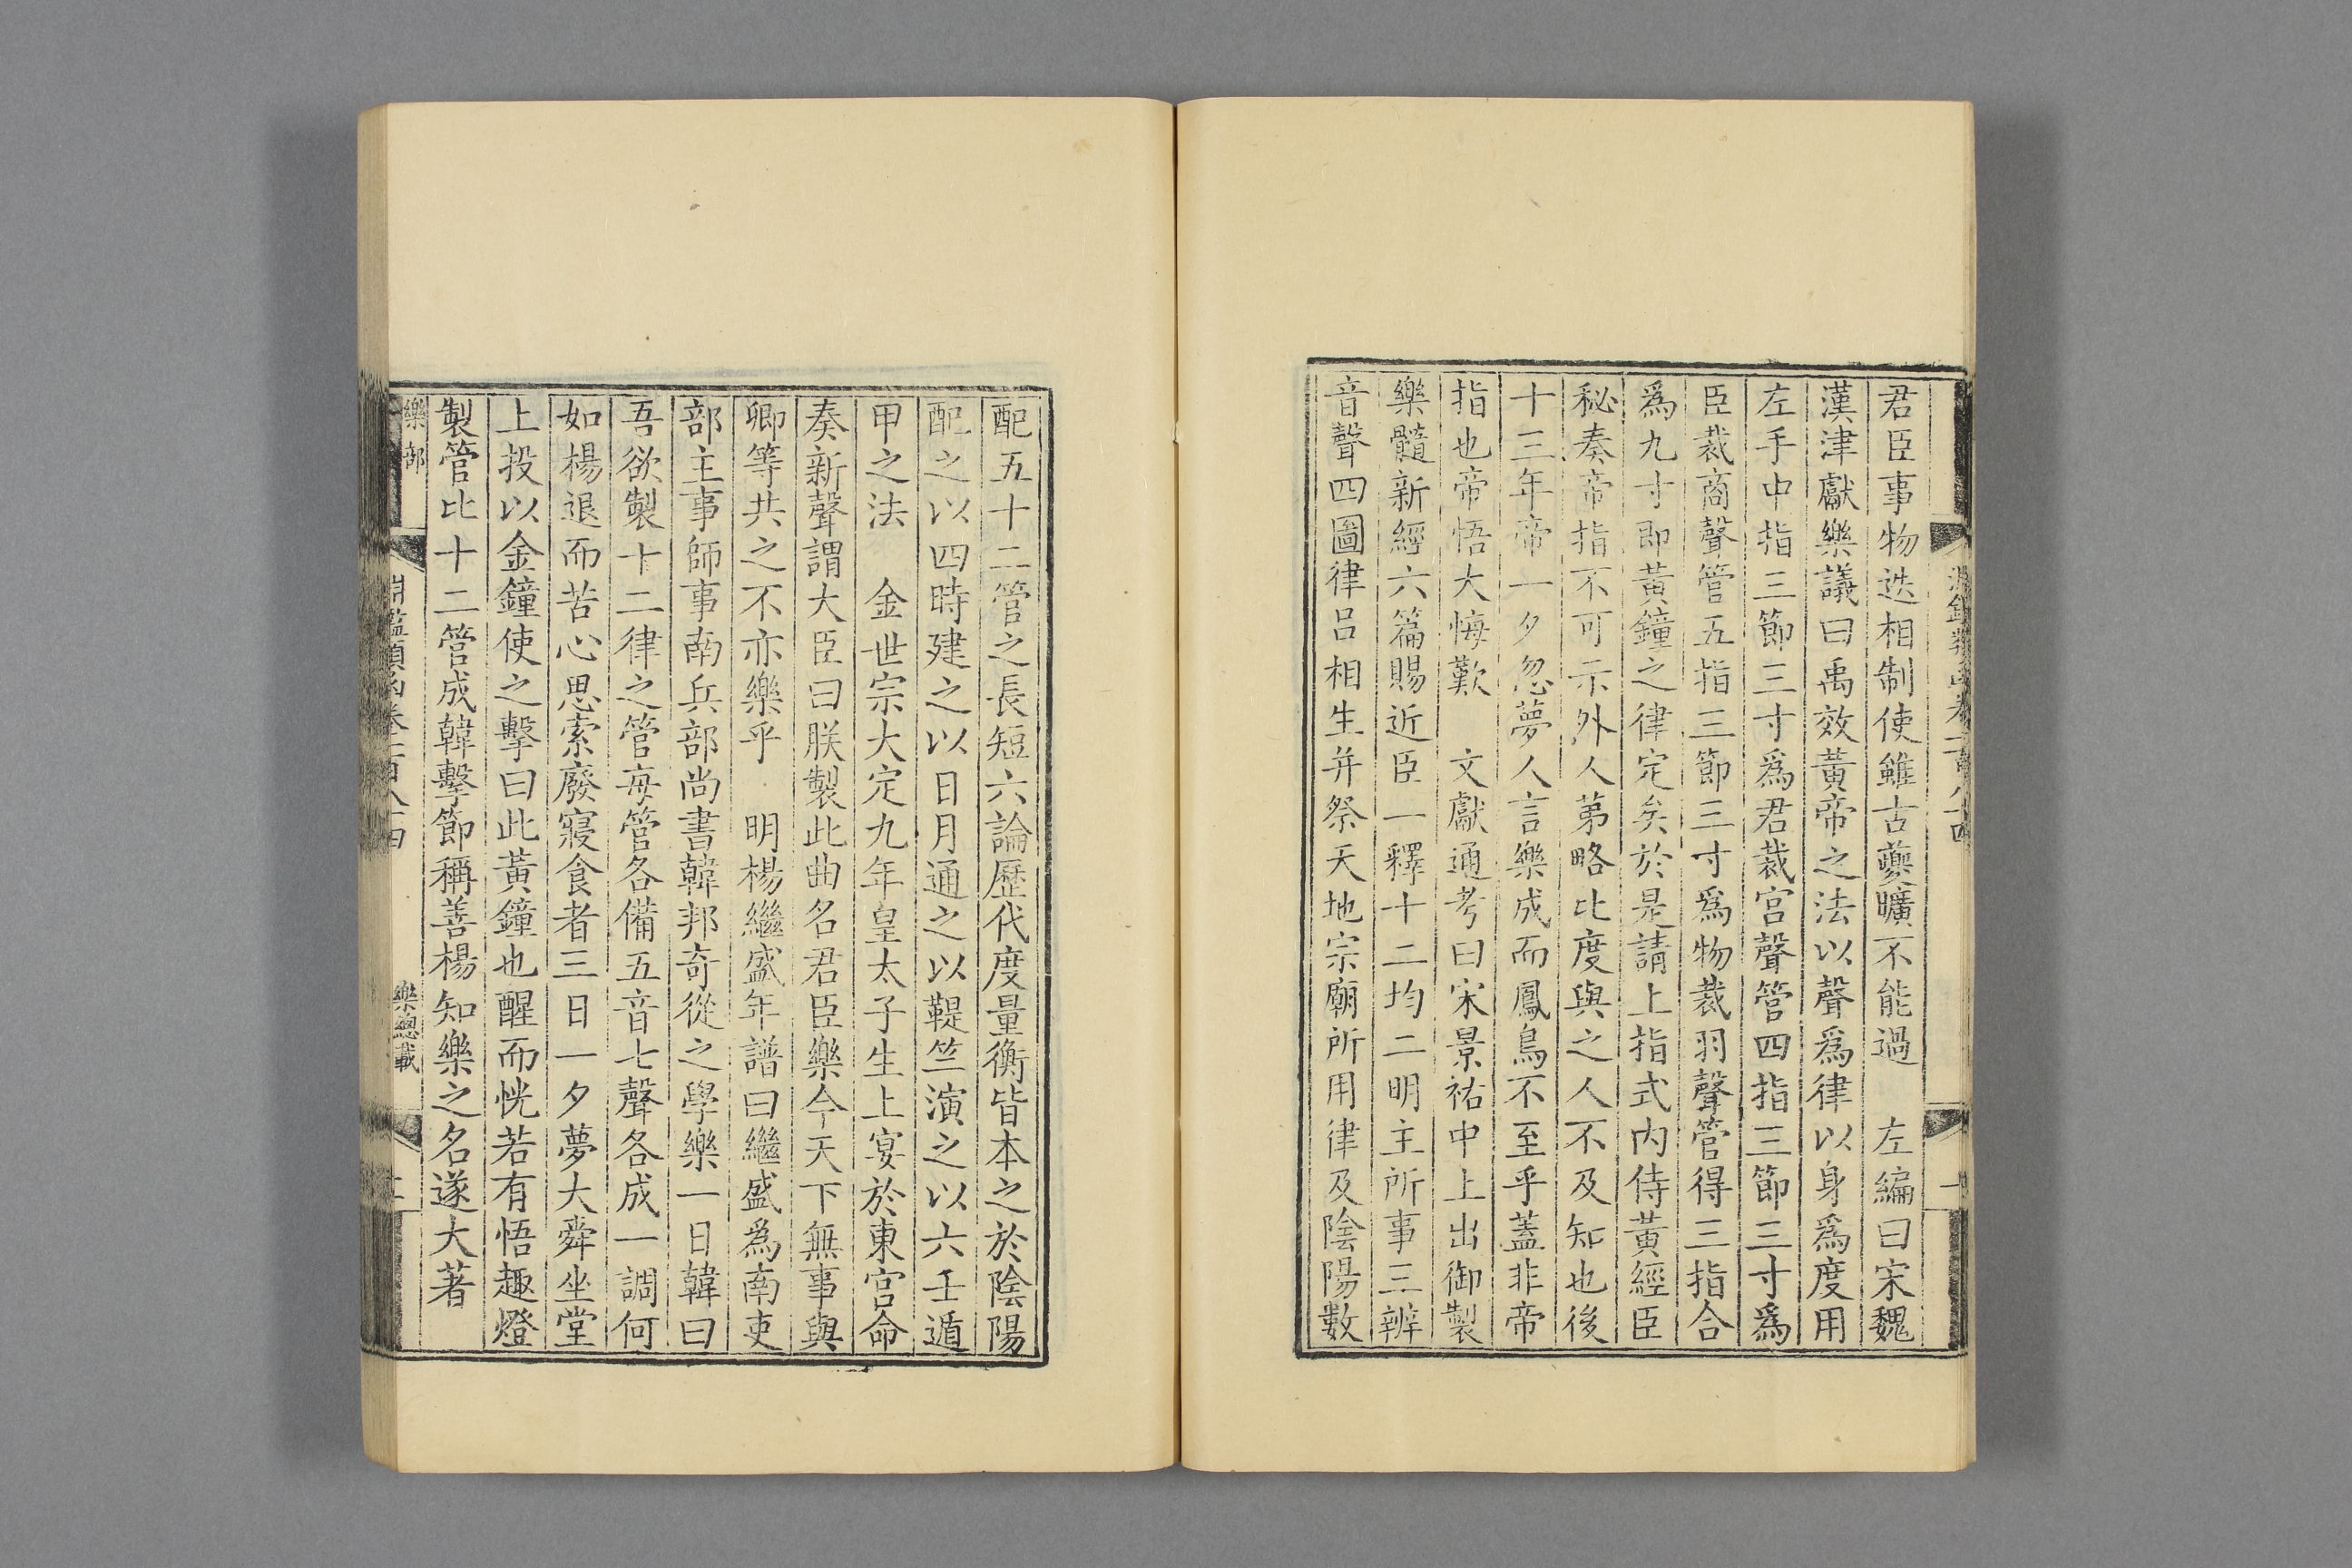 君臣事物迭相制使雖古夔曠不能過 左編曰宋魏
漢津獻樂議曰禹效黃帝之法以聲爲律以身爲度用
左手中指三節三寸爲君裁宮聲管四指三節三寸爲
臣裁商聲管五指三節三寸爲物裁羽聲管得三指合
爲九寸即黃鐘之律定矣於是請上指式內侍黃經臣
秘奏帝指不可示外人第略比度與之人不及知也後
十三年帝一夕忽夢人言樂成而鳳鳥不至乎蓋非帝
指也帝悟大悔歎 文獻通考曰宋景祐中上出御製
樂髓新經六篇賜近臣一釋十二均二明主所事三辨
音聲四圖律呂相生并祭天地宗廟所用律及陰陽數
配五十二管之長短六論歷代度量衡皆本之於陰陽
配之以四時建之以日月通之以鞮竺演之以六壬遁
甲之法 金世宗大定九年皇太子生上宴於東宮命
奏新聲謂大臣曰朕製此曲名君臣樂今天下無事與
卿等共之不亦樂乎 明楊繼盛年譜曰繼盛爲南吏
部主事師事南兵部尚書韓邦奇從之學樂一日韓曰
吾欲製十二律之管每管各備五音七聲各成一調何
如楊退而苦心思索廢寢食者三日一夕夢大舜坐堂
上投以金鐘使之擊曰此黃鐘也醒而恍若有悟趣燈
製管比十二管成韓擊節稱善楊知樂之名遂大著
樂部
淵鑑類函卷一百八十四
樂總載